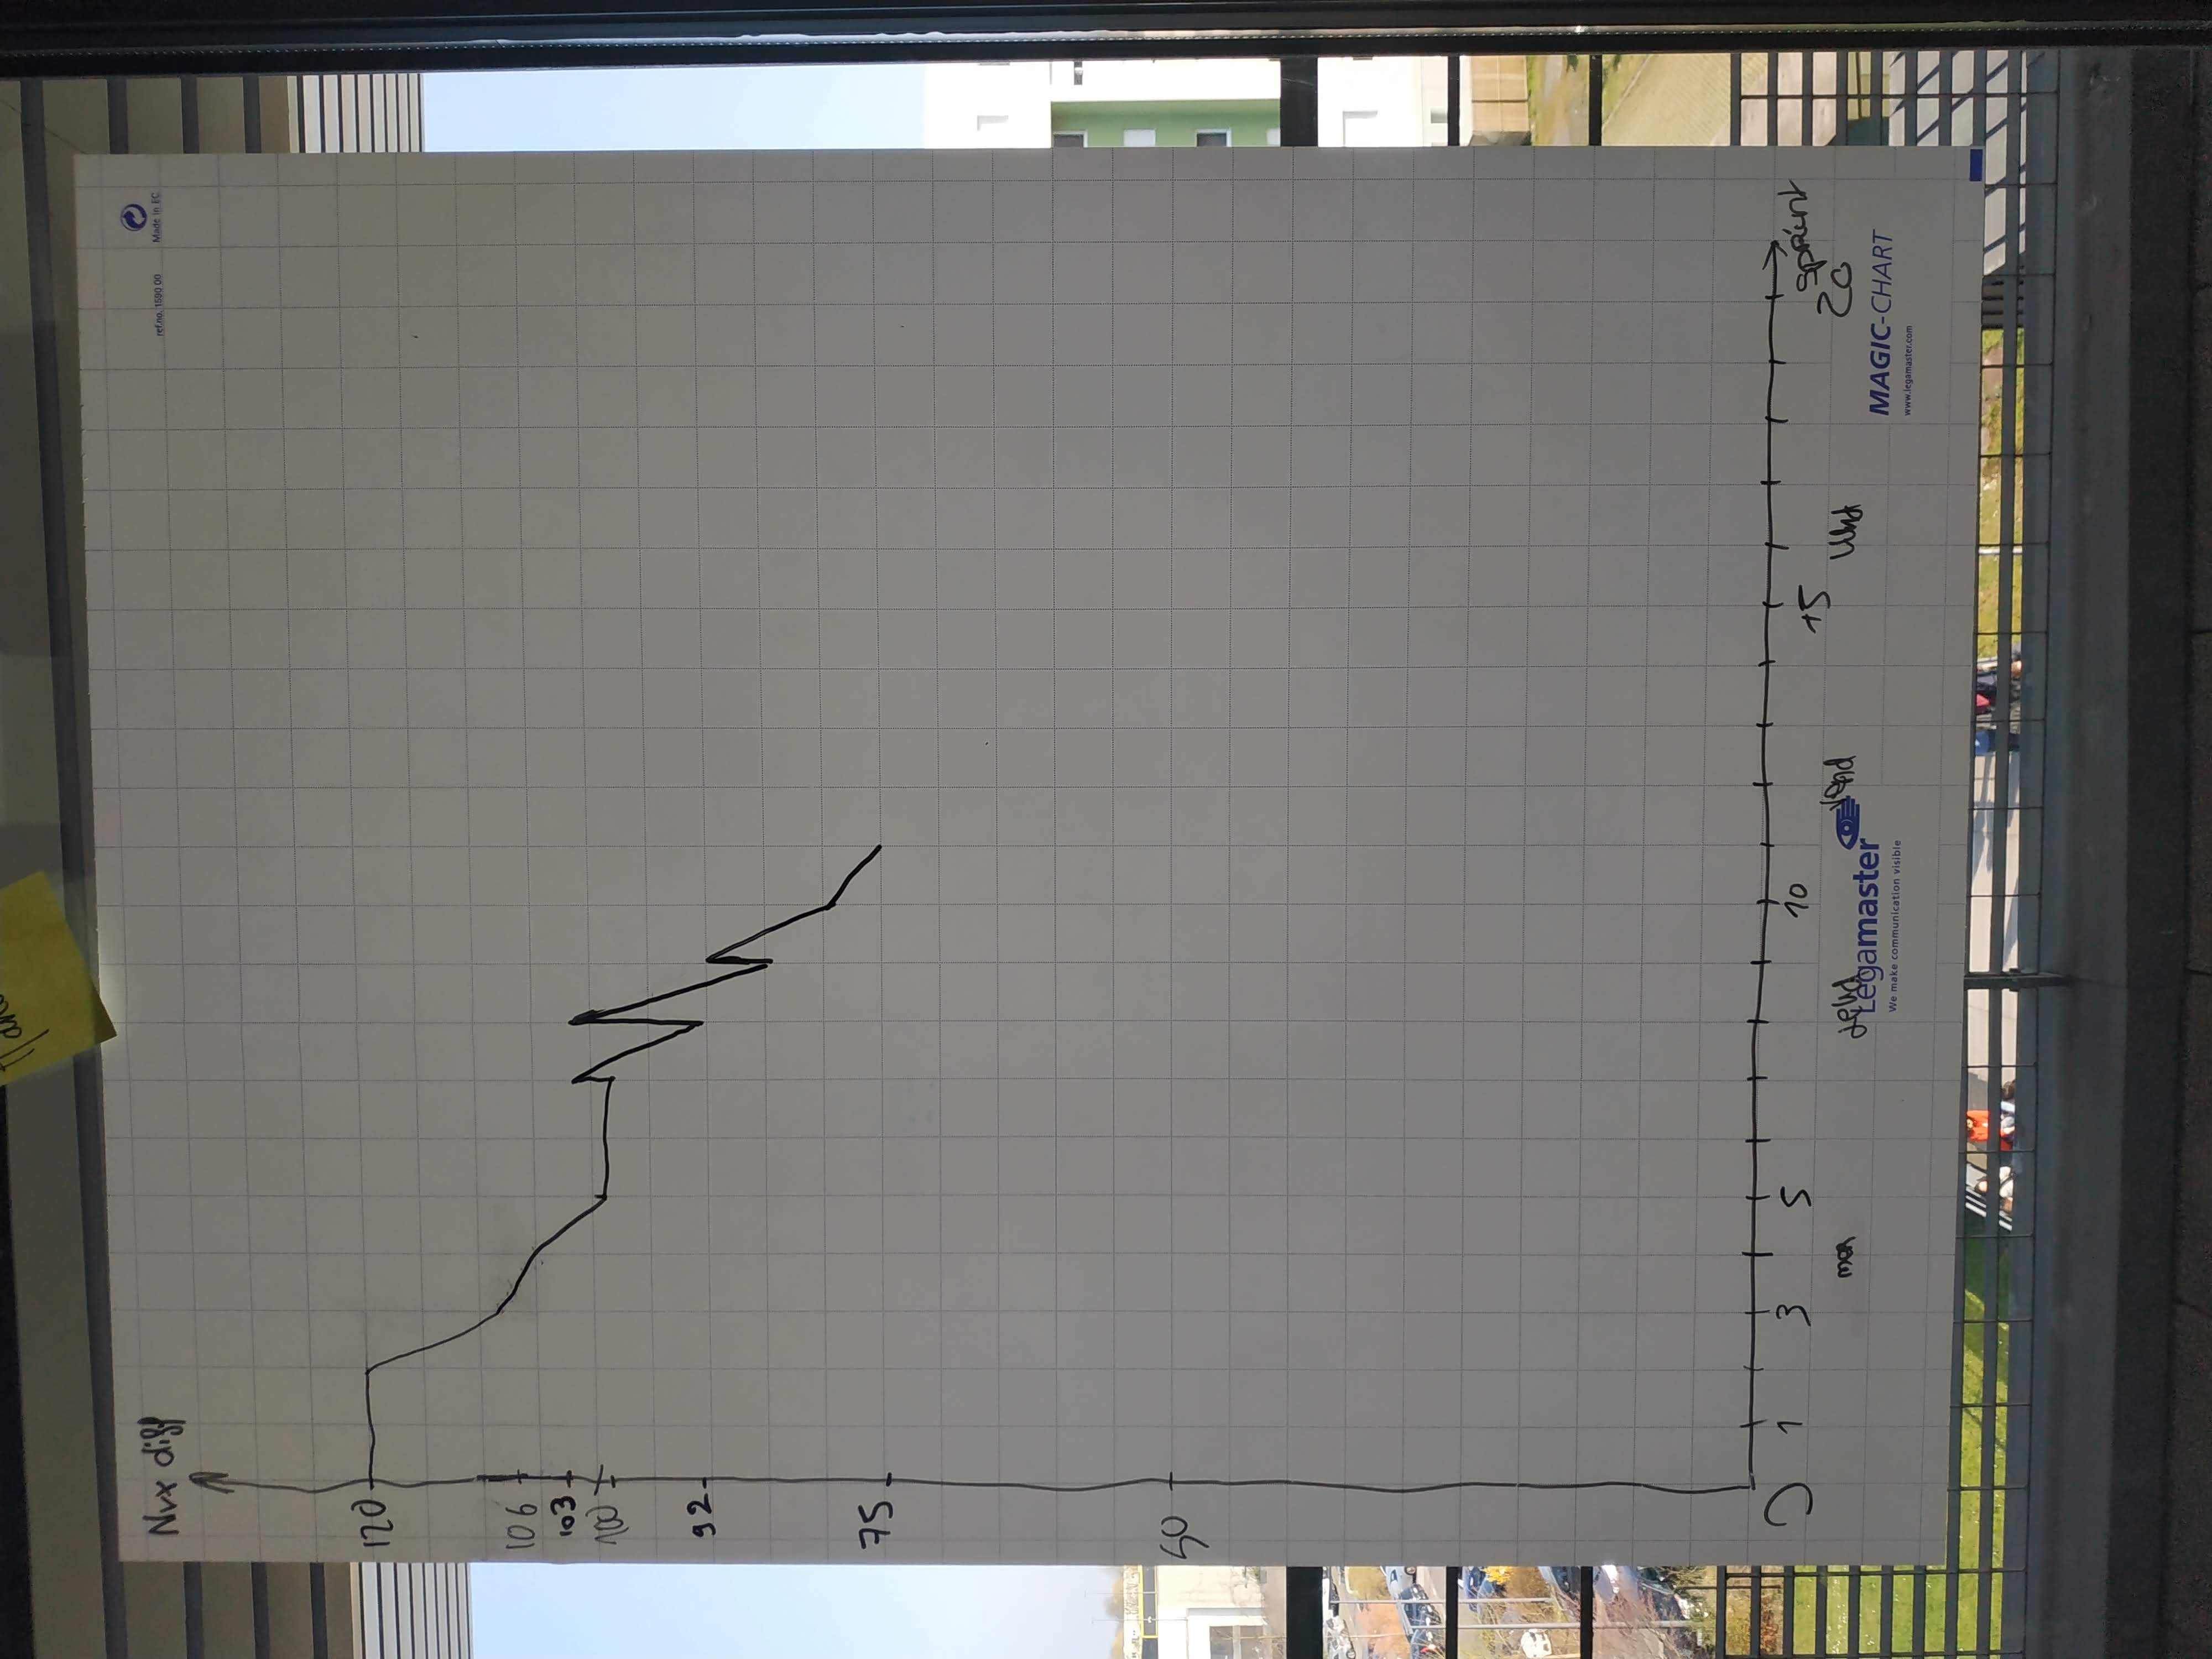 Nvx diff
ref.no. 1590 00
Made in EC
120
106
103
100
92
75
50
0
1 3 5 10 15 20
sprint
mer jeud vend
Legamaster
We make communication visible
MAGIC-CHART
www.legamaster.com